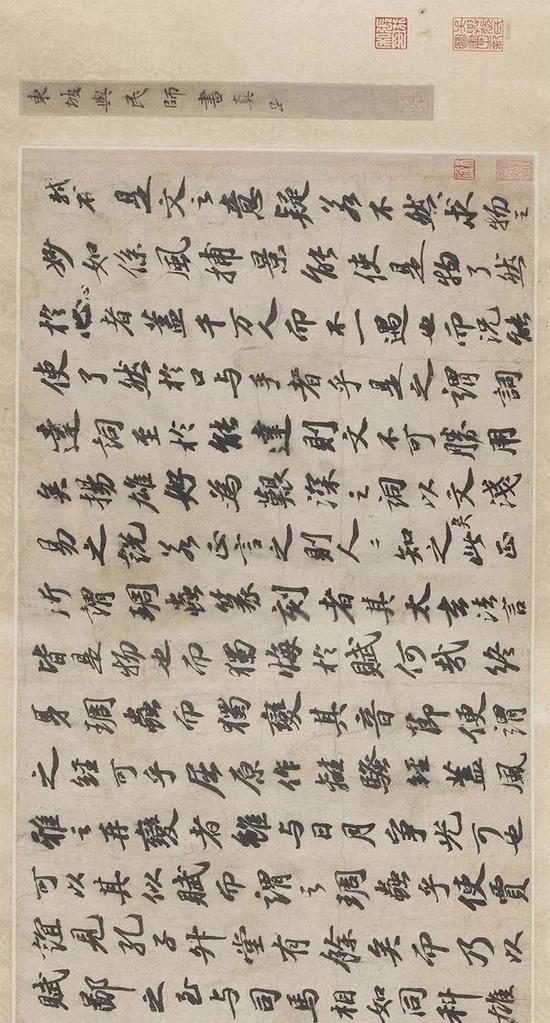 東坡與民師書真
是文之意疑若不然求物之
妙如係風捕景能使是物了然
於心者蓋千万人而不一遇也而況能
使了然於口与手者乎是之謂詞
達詞至於能達則文不可勝用
矣揚雄好為艱深之詞以文淺
易之說若正言之則人〻知之矣此正
所謂琱蟲篆刻者其太玄法言
皆是物也而獨悔於賦何哉終
身琱蟲而獨變其音節便謂
之經可乎屈原作離騷經蓋風
雅之再變者雖与日月爭光可也
可以其似賦而謂之琱蟲乎使賈
誼見孔子升堂有餘矣而乃以
賦鄙之至与司馬相如同科雄